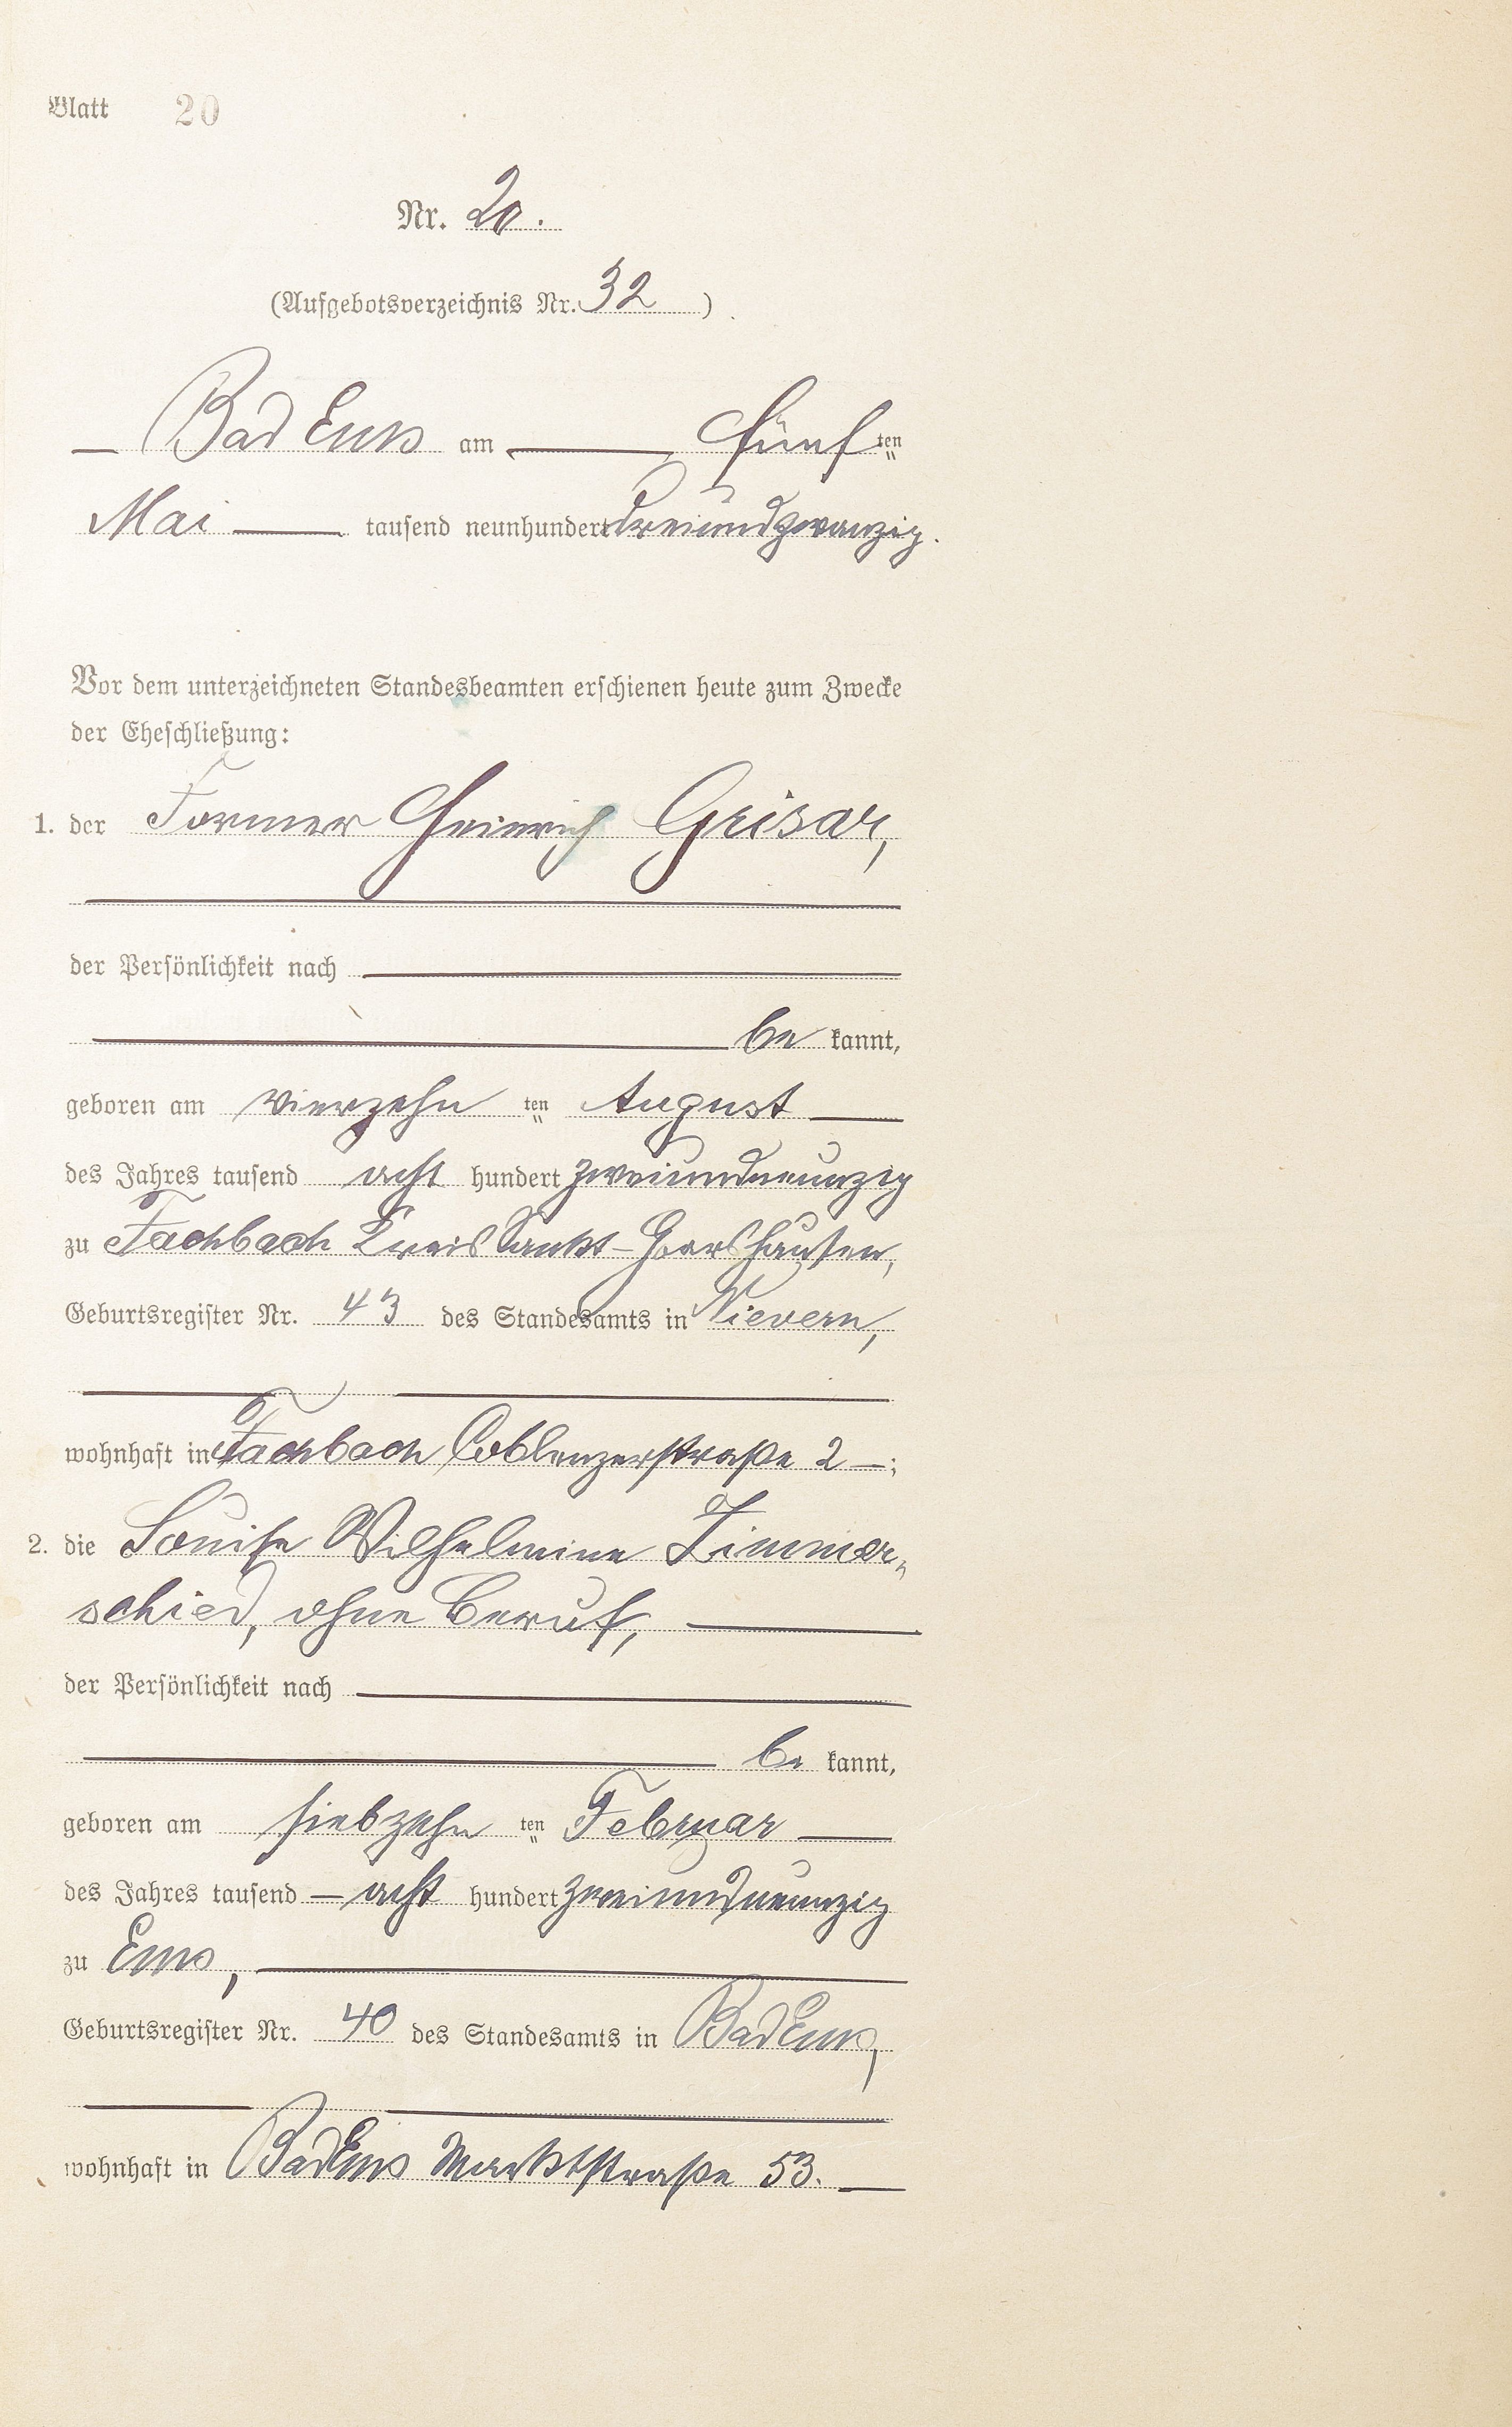 Blatt 20
Nr. 20.
(Aufgebotsverzeichnis Nr. 32)
Bad Ems am fünften
Mai tausend neunhundert dreiundzwanzig.
Vor dem unterzeichneten Standesbeamten erschienen heute zum Zwecke
der Eheschließung:
1. der Former Heinrich Grisar,
der Persönlichkeit nach
be kannt,
geboren am vierzehn ten August
des Jahres tausend acht hundert zweiundneunzig
zu Fachbach Kreis Sankt-Goarshausen,
Geburtsregister Nr. 43 des Standesamts in Nievern,
wohnhaft in Fachbach Coblenzerstraße 2;
2. die Louise Wilhelmine Zimmer-
schied, ohne Beruf,
der Persönlichkeit nach
be kannt,
geboren am siebzehn ten Februar
des Jahres tausend acht hundert zweiundneunzig
zu Ems,
Geburtsregister Nr. 40 des Standesamts in Bad Ems,
wohnhaft in Bad Ems Marktstraße 53.